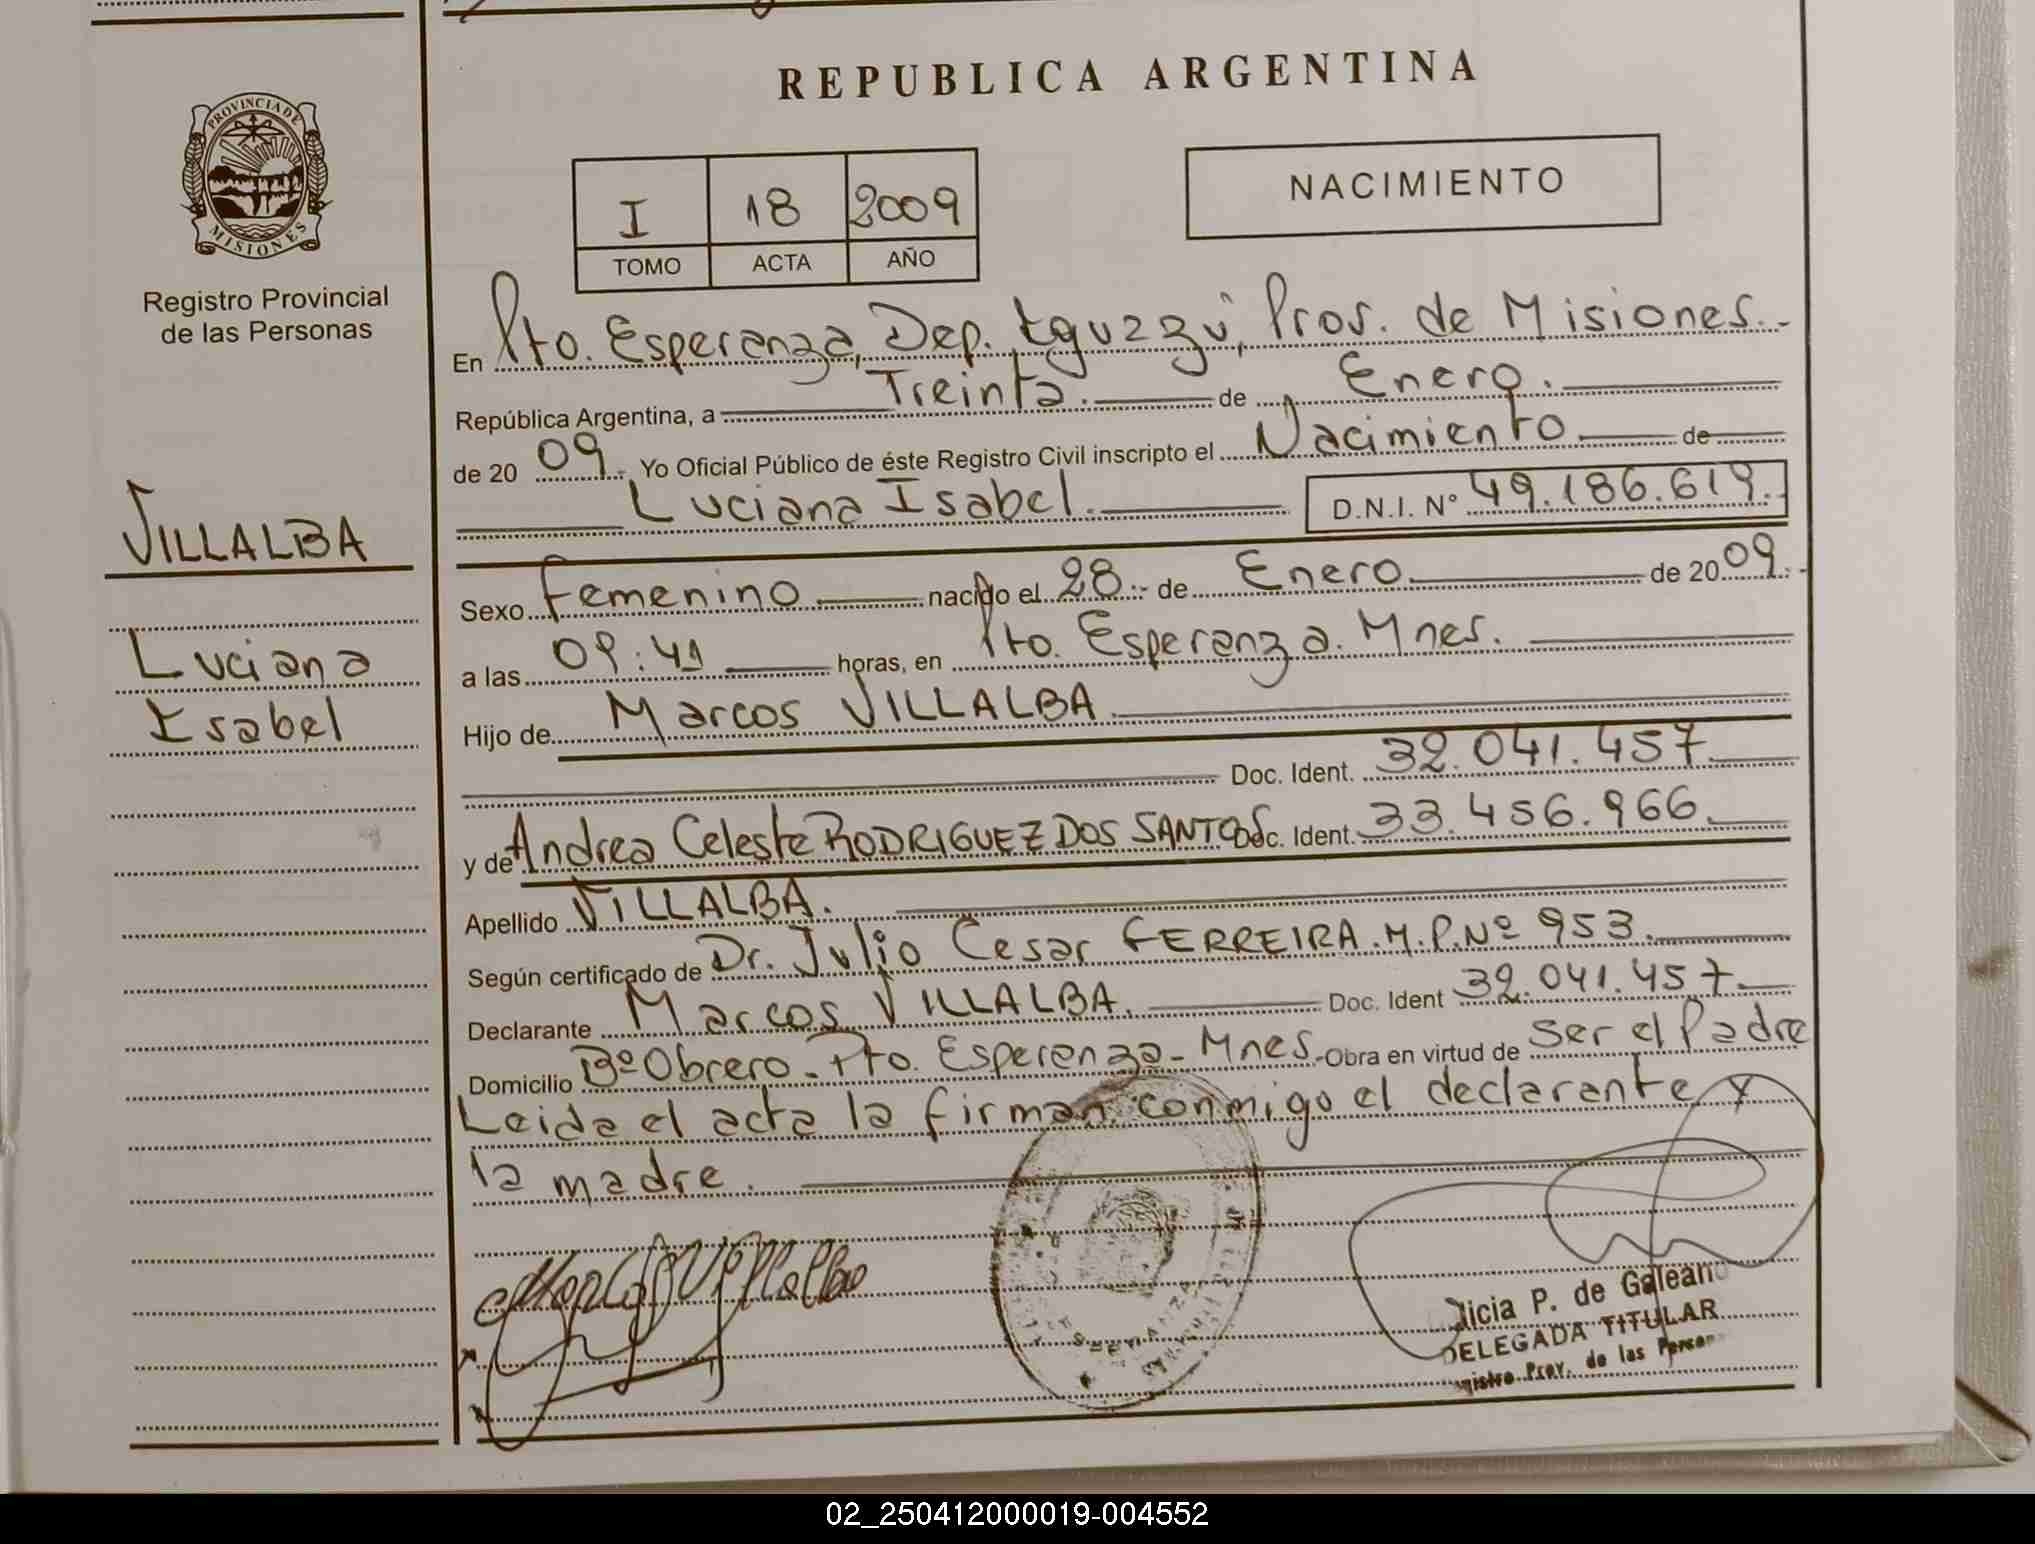 REPUBLICA ARGENTINA
PROVINCIA DE
MISIONES
Registro Provincial
de las Personas
I 18 2009
TOMO ACTA AÑO
NACIMIENTO
En Pto. Esperanza, Dep. Iguazú, Prov. de Misiones.-
República Argentina, a Treinta. de Enero.
de 20 09.- Yo Oficial Público de éste Registro Civil inscripto el Nacimiento de
Luciana Isabel. D.N.I. Nº 49.186.619.
VILLALBA
Luciana
Isabel
Sexo Femenino nacido el 28.- de Enero de 20 09.-
a las 09:41 horas, en Pto. Esperanza. Mnes.
Hijo de Marcos VILLALBA
Doc. Ident. 32.041.457
y de Andrea Celeste RODRIGUEZ DOS SANTOS Doc. Ident. 33.456.966
Apellido VILLALBA.
Según certificado de Dr. Julio Cesar FERREIRA. M.P. Nº 953.
Declarante Marcos VILLALBA. Doc. Ident 32.041.457
Domicilio Bº Obrero - Pto. Esperanza - Mnes.- Obra en virtud de ser el Padre
Leida el acta la firman conmigo el declarante y
la madre.
Marcos Villalba
licia P. de Galeano
DELEGADA TITULAR
gistro Prov. de las Person
02_250412000019-004552